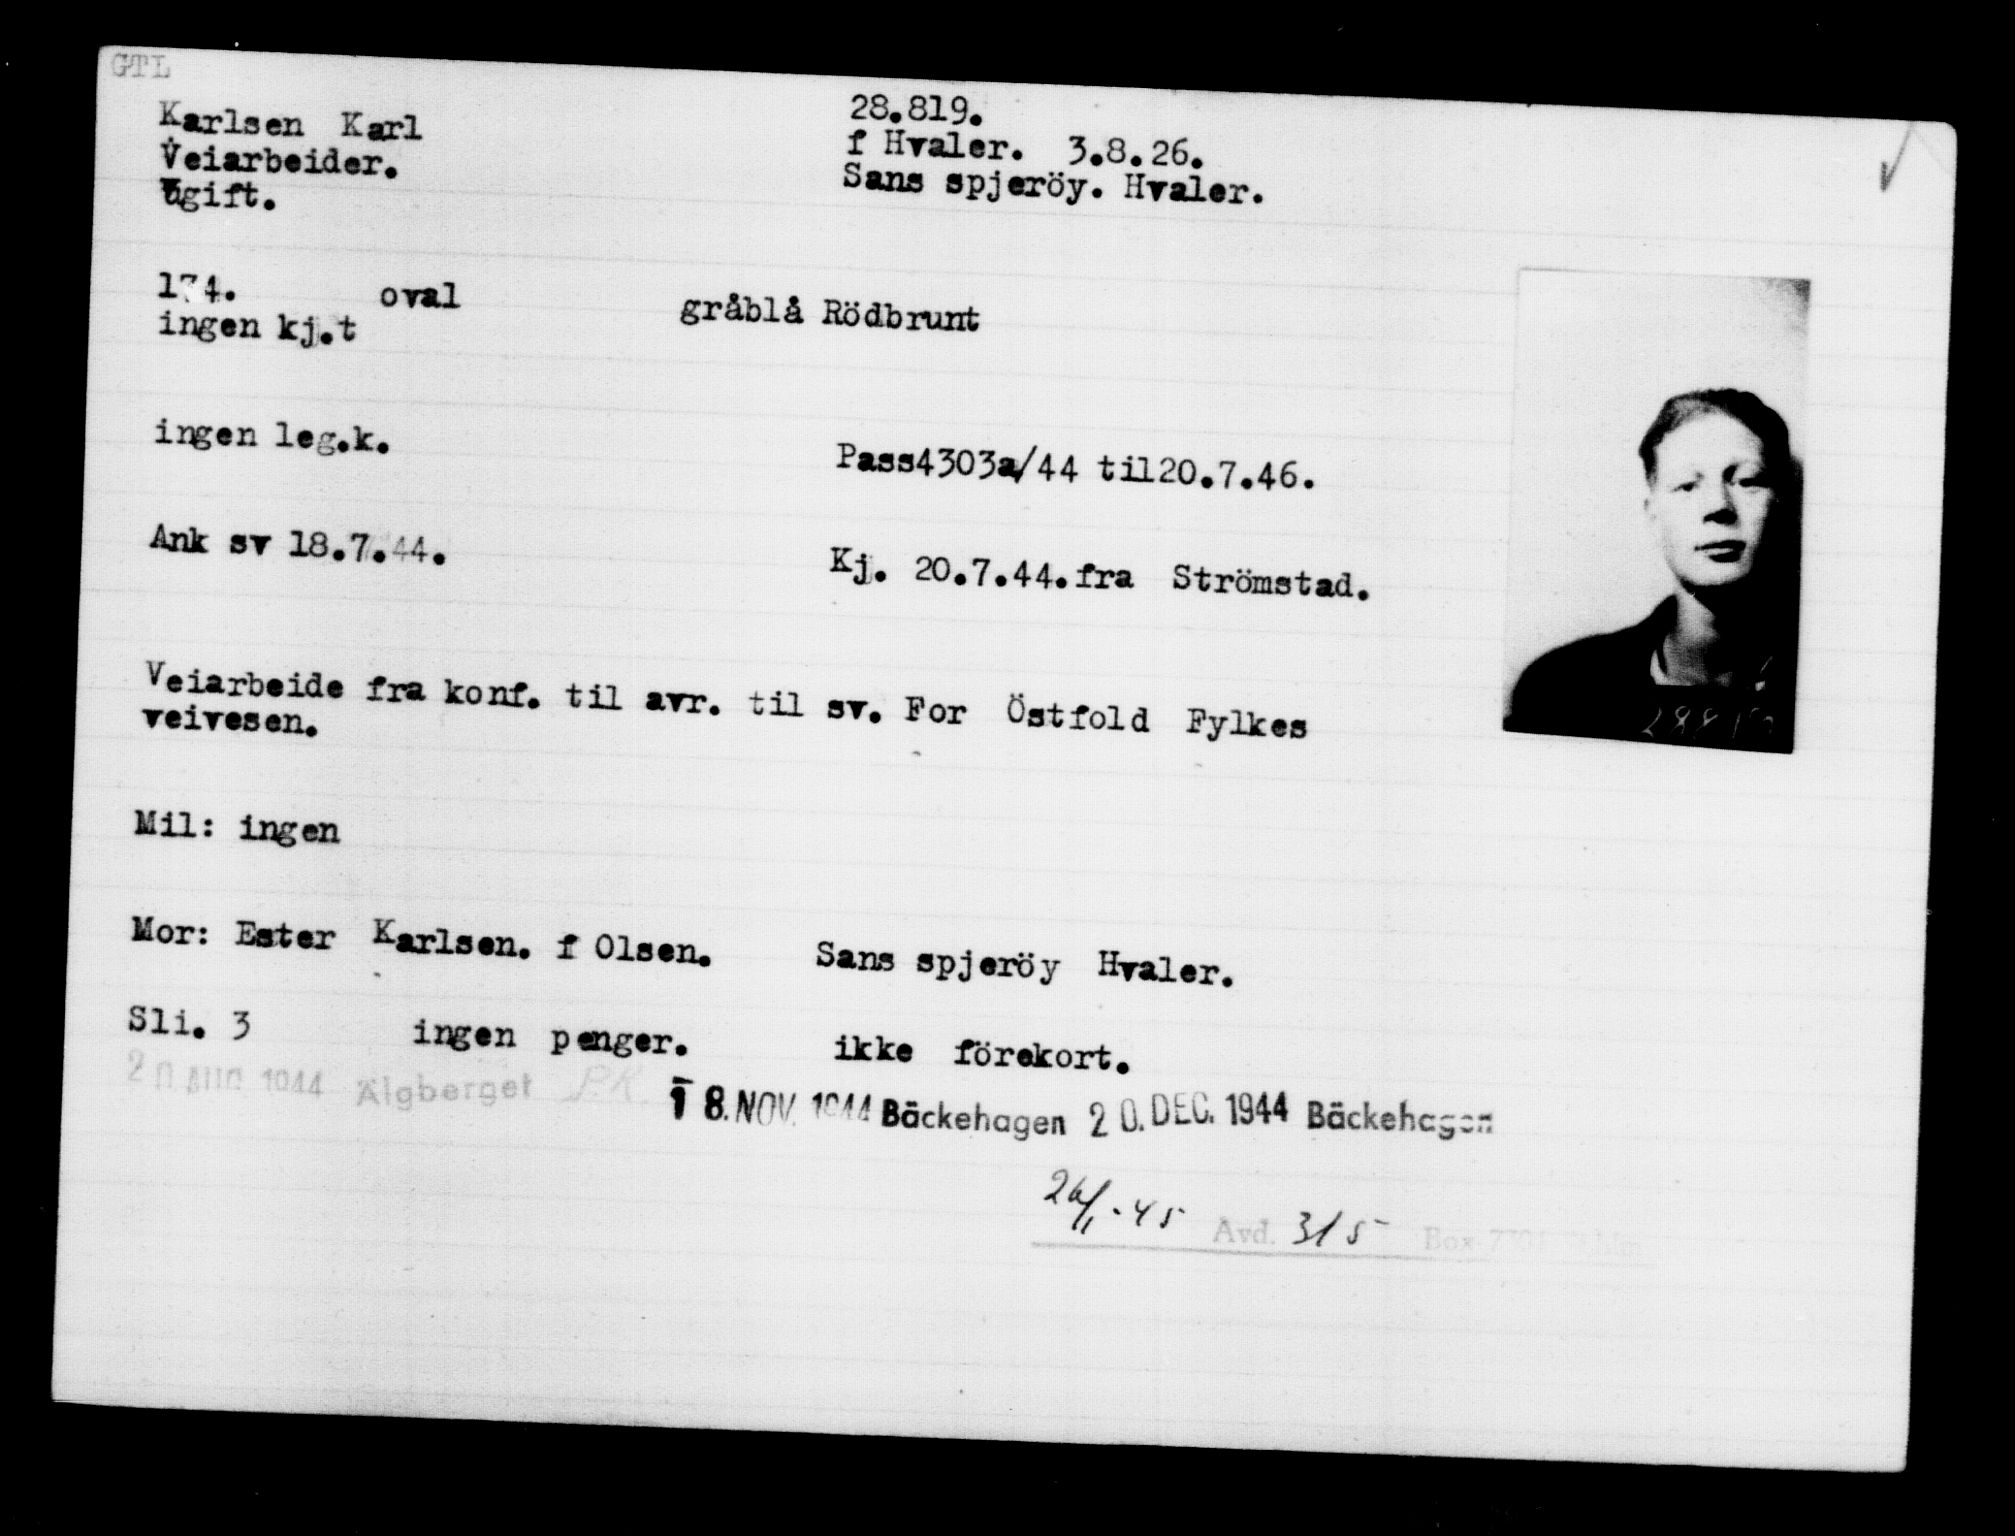 GTL
Karlsen Karl 28.819.
Veiarbeider. f Hvaler. 3.8.26.
Ugift. Sans spjeröy. Hvaler.
174. oval gråblå Rödbrunt
ingen kj.t
ingen leg.k. Pass4303a/44 til20.7.46.
Ank sv 18.7.44. Kj. 20.7.44.fra Strömstad.
Veiarbeide fra konf. til avr. til sv. For Östfold Fylkes
veivesen.
Mil: ingen
Mor: Ester Karlsen. f Olsen. Sans spjeröy Hvaler.
Sli. 3 ingen penger. ikke förekort.
20 AUG 1944 Älgberget P.K. 18. NOV. 1944 Bäckehagen 20. DEC. 1944 Bäckehagen
26/1-45 Avd. 315 Box